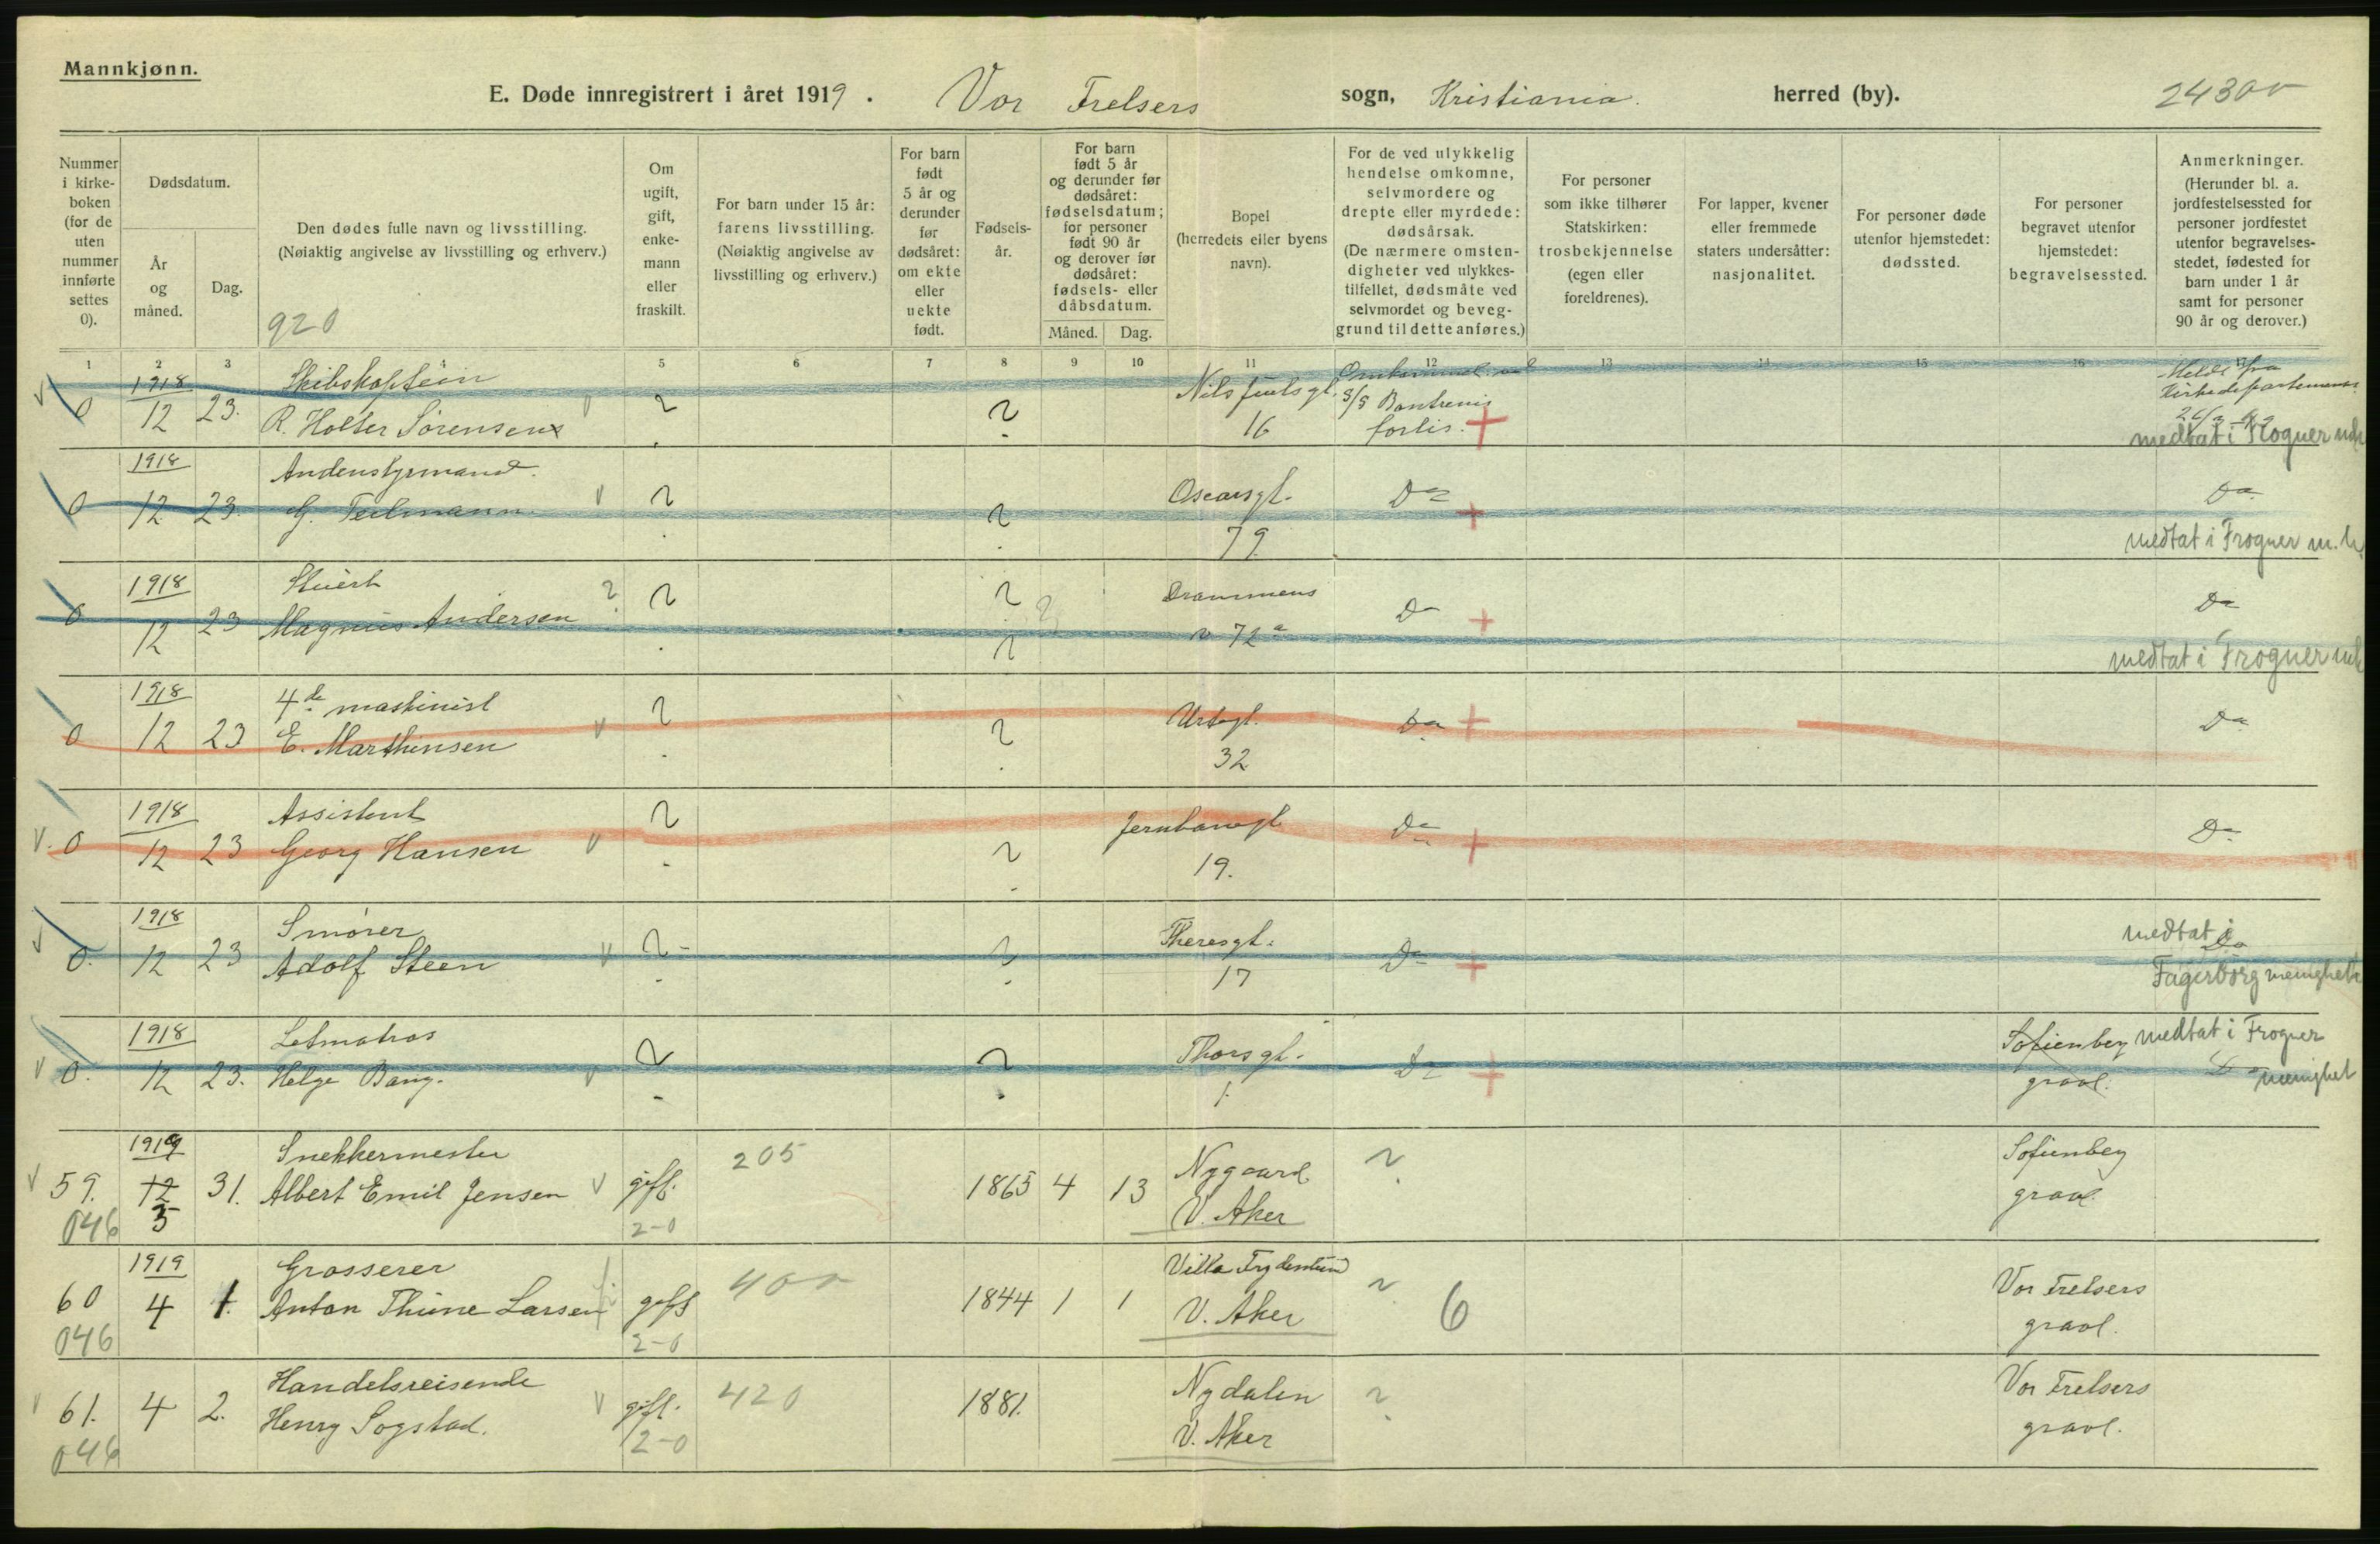 Mannkjønn.
E. Døde innregistrert i året 1919. Vor Frelsers sogn, Kristiania herred (by). 24300
Nummer i kirkeboken (for de uten nummer innførte settes 0).
Dødsdatum.
År og måned.
Dag.
Den dødes fulle navn og livsstilling.
(Nøiaktig angivelse av livsstilling og erhverv.)
920
Om ugift, gift, enkemann eller fraskilt.
For barn under 15 år: farens livsstilling. (Nøiaktig angivelse av livsstilling og erhverv.)
For barn født 5 år og derunder før dødsåret: om ekte eller uekte født.
Fødselsår.
For barn født 5 år og derunder før dødsåret: fødselsdatum; for personer født 90 år og derover før dødsåret: fødsels- eller dåbsdatum.
Måned. Dag.
Bopel (herredets eller byens navn).
For de ved ulykkelig hendelse omkomne, selvmordere og drepte eller myrdede: dødsårsak. (De nærmere omstendigheter ved ulykkestilfellet, dødsmåte ved selvmordet og beveggrund til dette anføres.)
For personer som ikke tilhører Statskirken: trosbekjennelse (egen eller foreldrenes).
For lapper, kvener eller fremmede staters undersåtter: nasjonalitet.
For personer døde utenfor hjemstedet: dødssted.
For personer begravet utenfor hjemstedet: begravelsessted.
Anmerkninger. (Herunder bl. a. jordfestelsessted for personer jordfestet utenfor begravelsesstedet, fødested for barn under 1 år samt for personer 90 år og derover.)
1 2 3 5 6 7 8 9 10 11 12 13 14 15 16 17
0 1918 12 23. Skibskaptein R. Holter Sørensen ? ? Nils Juelsgt. 16 Omkommet ved S/S Bontrenis forlis. + Meldt fra Kirkedepartementet medtat i Frogner
0 1918 12 23. Andenstyrmand. G. Teilmann ? ? Oscarsgt. 79 Do + Do medtat i Frogner m.h.
0 1918 12 23 Stuert Magnus Andersen ? ? ? Drammens v 72a Do + Do medtat i Frogner mh
0 1918 12 23 4de maskinist E. Marthinsen ? ? Urtegt. 32 Do + Do
0 1918 12 23 Assistent Georg Hansen ? ? Jernbanegt. 19. Do + Do
0. 1918 12 23 Smører Adolf Steen ? ? Theresgt. 17 Do + Do medtat i Fagerborg menighet
0. 1918 12 23. Letmatros Helge Bang. ? ? Thorsgt. 1. Do + Sofienberg gravl. Do medtat i Frogner menighet
59. 046 1919 12 5 31. Snekkermester Albert Emil Jensen gift. 2-0 205 1865 4 13 Nygaard V. Aker ? Sofienberg gravl.
60 046 1919 4 1. Grosserer Anton Thune Larsen gift 2-0 400 1844 1 1 Villa Frydenlund V. Aker ? 6 Vor Frelsers gravl.
61. 046 4 2. Handelsreisende Henry Sogstad. gift. 2-0 420 1881. Nydalen V. Aker ? Vor Frelsers gravl.